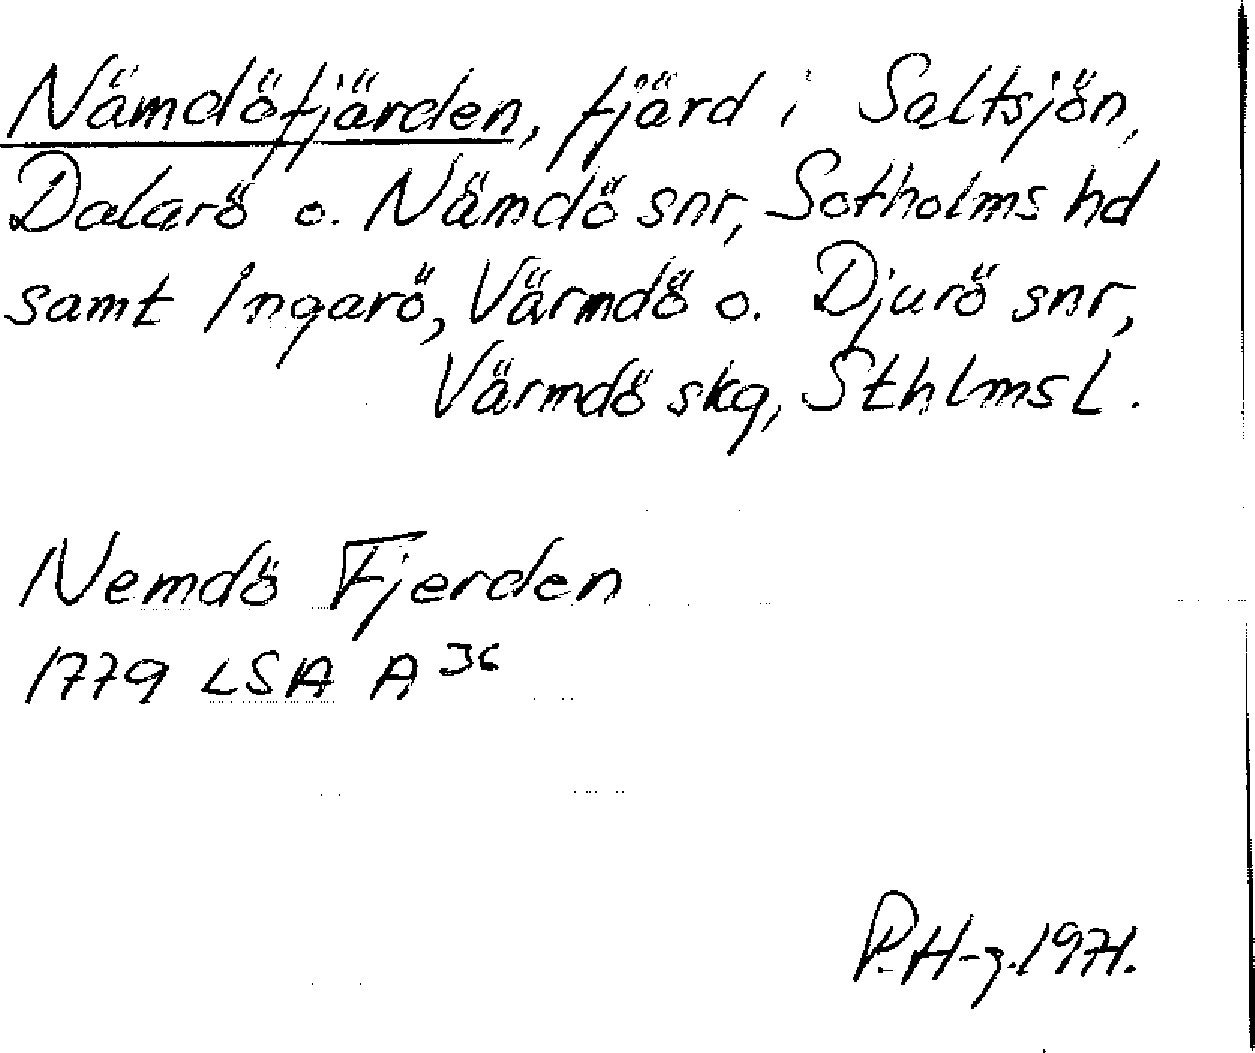 Nämdöfjärden, fjärd i Saltsjön,
Dalarö o. Nämdö snr, Sotholms hd
samt Ingarö, Värmdö o. Djurö snr,
Värmdö skg, Sthlms L.
Nemdö Fjerden
1779 LSA A 36
P. H-g. 1971.